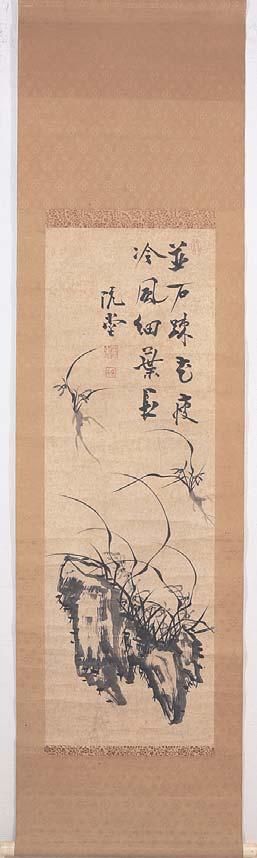 並石疎花瘦
冷風細葉長
阮堂